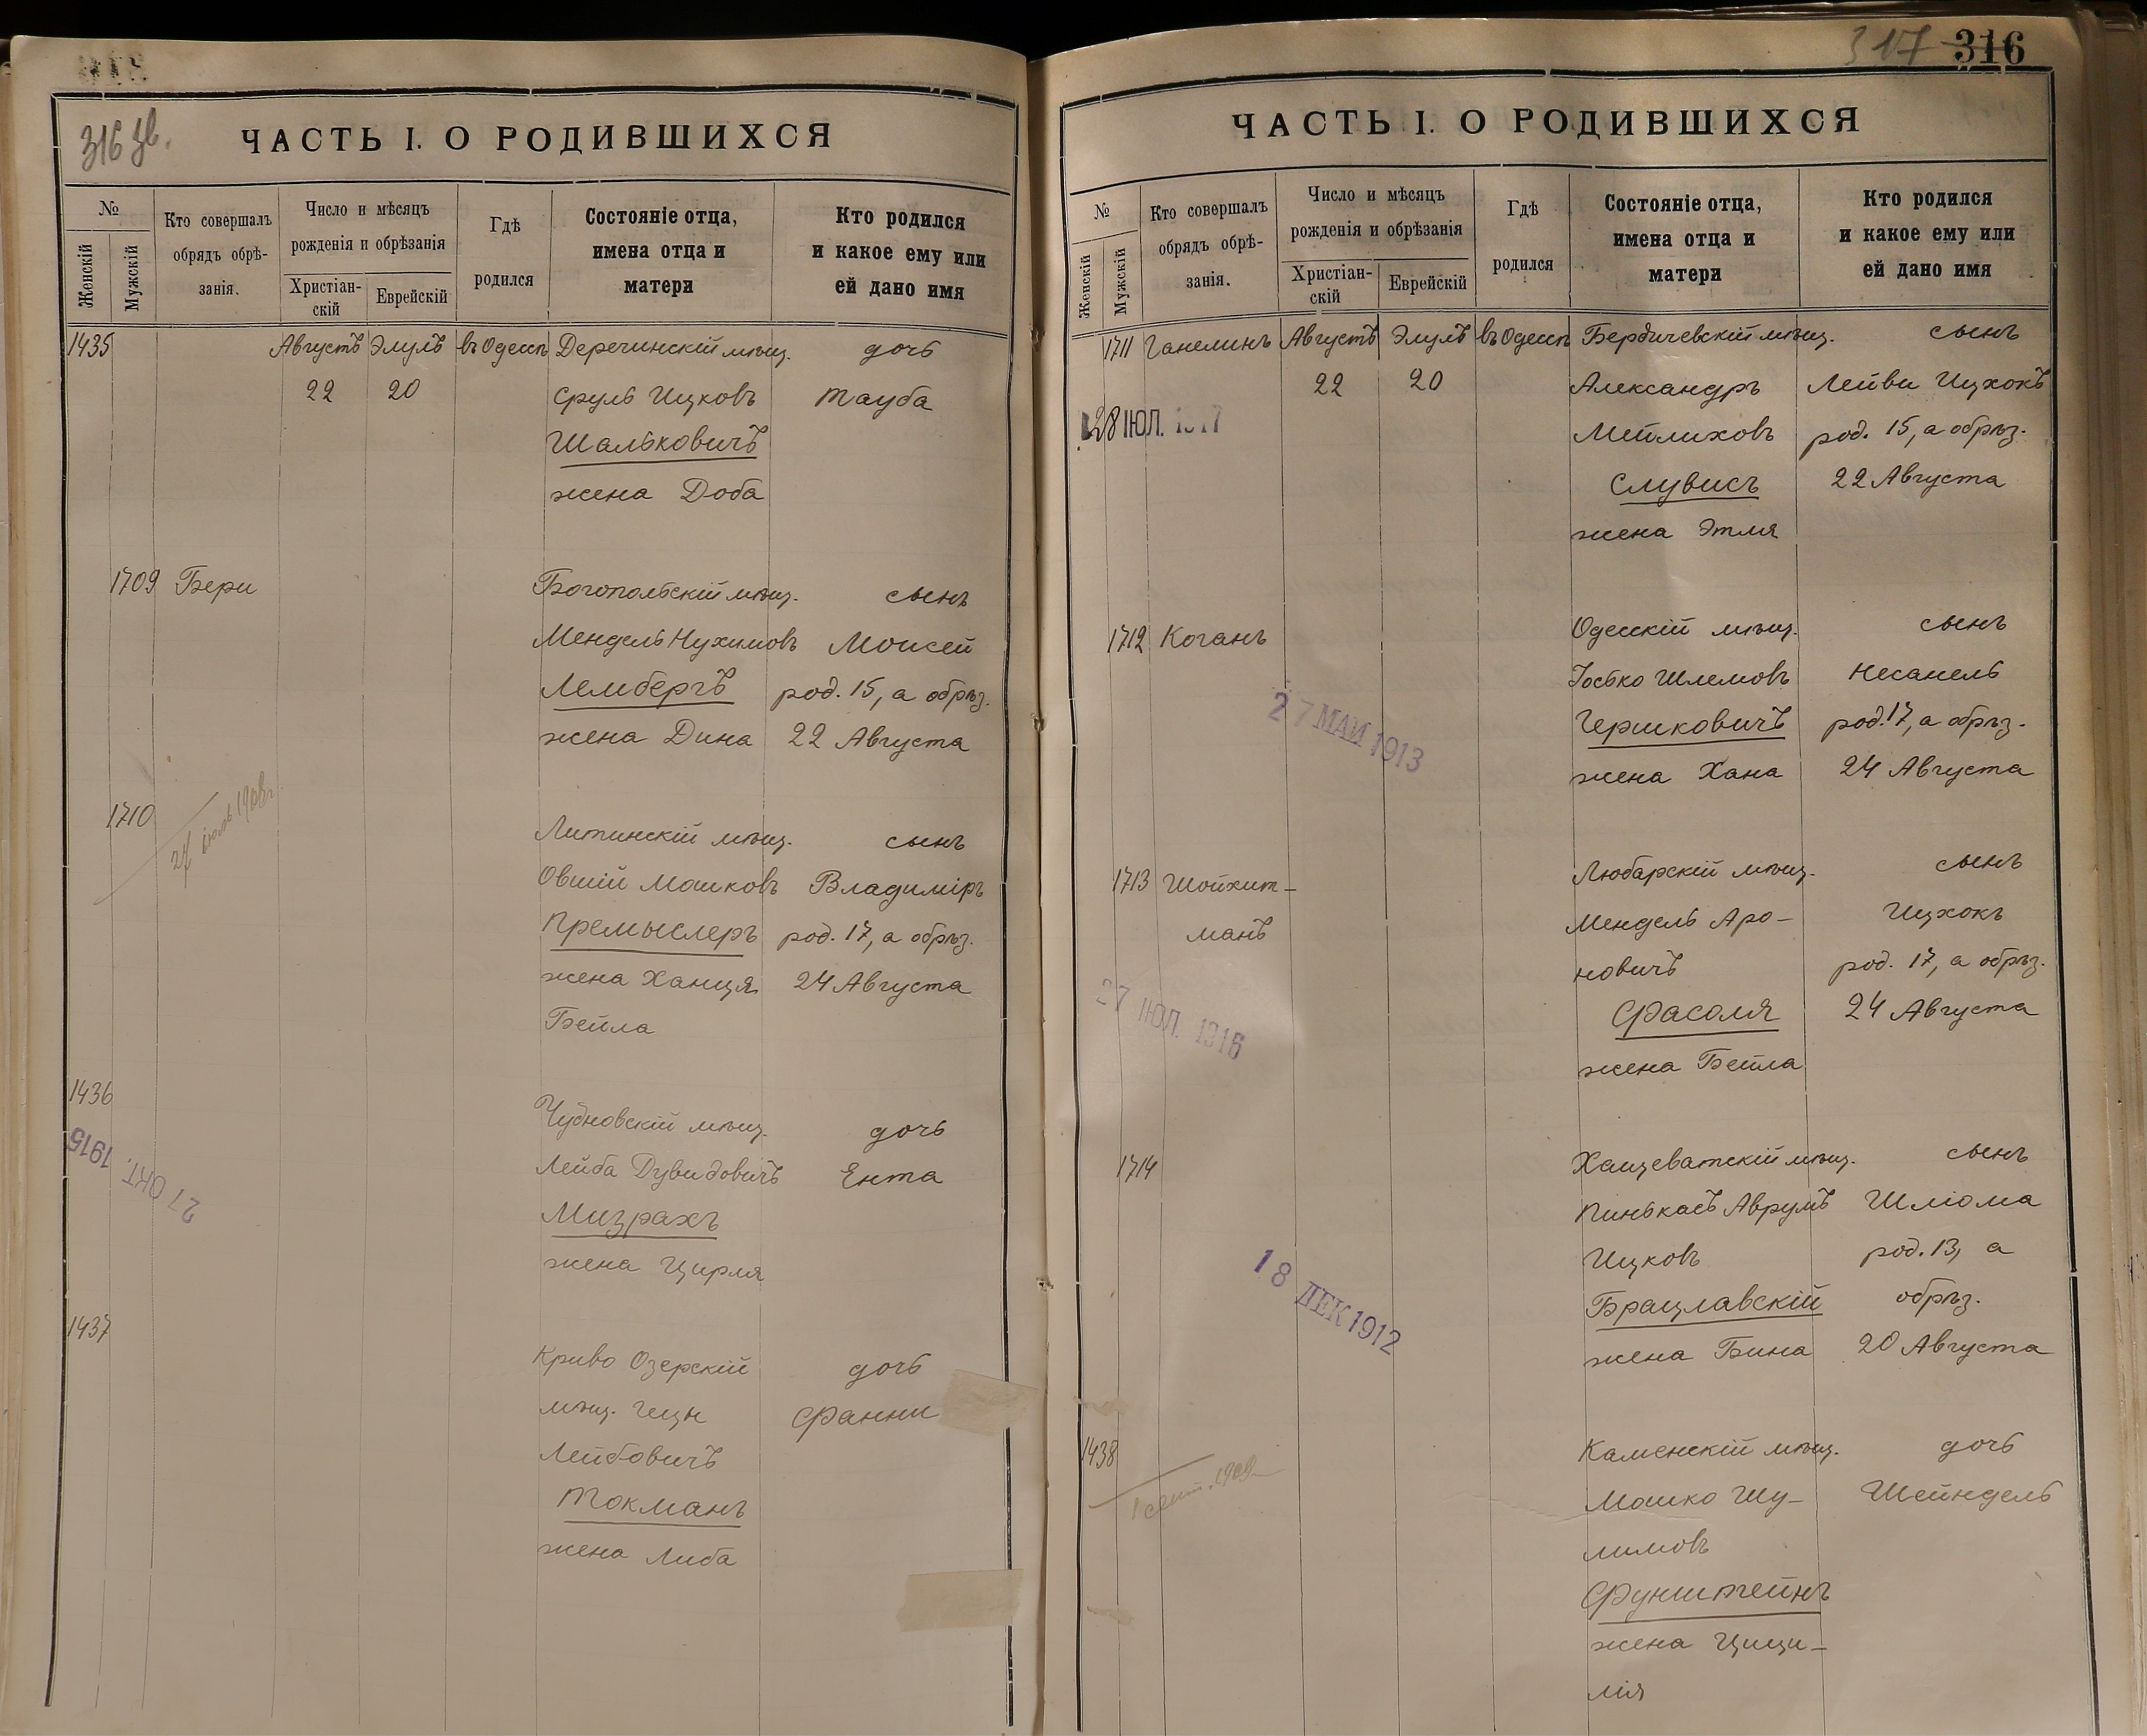 316 зв.
ЧАСТЬ I. О РОДИВШИХСЯ
№
Женскій
Мужскій
Кто совершалъ
обрядъ обрѣ-
занія.
Число и мѣсяцъ
рожденія и обрѣзанія
Христіан-
скій
Еврейскій
Гдѣ
родился
Состояніе отца,
имена отца и
матери
Кто родился
и какое ему или
ей дано имя
1435 Августъ Элулъ въ Одессѣ Деречинскій мѣщ. дочь
22 20 Сруль Ицковъ Тауба
Шальковичъ
жена Доба
1709 Бери Богопольскій мѣщ. сынъ
Мендель Нухимовъ Моисей
Лембергъ род. 15, а обрѣз.
жена Дина 22 Августа
1710 Литинскій мѣщ. сынъ
Овшій Мошковъ Владиміръ
Премыслеръ род. 17, а обрѣз.
жена Ханця 24 Августа
Бейла
1436 Чудновскій мѣщ. дочь
27 ОКТ. 1915
Лейба Дувидовичъ Ента
Мизрахъ
жена Цирля
1437 Криво Озерскій дочь
мѣщ. Фанни
Лейбовичъ
Токманъ
жена Либа
317 316
ЧАСТЬ I. О РОДИВШИХСЯ
№
Женскій
Мужскій
Кто совершалъ
обрядъ обрѣ-
занія.
Число и мѣсяцъ
рожденія и обрѣзанія
Христіан-
скій
Еврейскій
Гдѣ
родился
Состояніе отца,
имена отца и
матери
Кто родился
и какое ему или
ей дано имя
1711 Ганелинъ Августъ Элулъ въ Одессѣ Бердичевскій мѣщ. сынъ
22 20 Александръ Лейви Ицхокъ
28 ІЮЛ. 1917 Мейлиховъ род. 15, а обрѣз.
Слувисъ 22 Августа
жена Этля
1712 Коганъ Одесскій мѣщ. сынъ
Іосько Шлемовъ Несанель
27 МАЙ 1913 Гершковичъ род. 17, а обрѣз.
жена Хана 24 Августа
1713 Шойхит- Любарскій мѣщ. сынъ
манъ Мендель Аро- Ицхокъ
новичъ род. 17, а обрѣз.
27 ІЮЛ. 1916 Фасоля 24 Августа
жена Бейла
1714 Хащеватскій мѣщ. сынъ
Пинькасъ Аврумъ Шліома
Ицковъ род. 13, а
18 ДЕК 1912 Брацлавскій обрѣз.
жена Бина 20 Августа
1438 Каменскій мѣщ. дочь
1 сент. 1909 Мошко Шу- Шейндель
лимовъ
Фунштейнъ
жена Цици-
лія